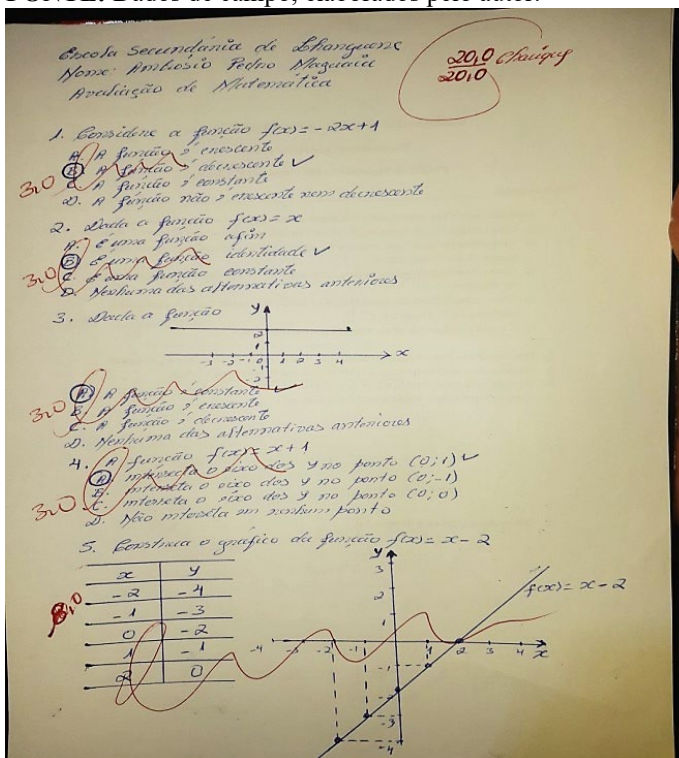 FONTE: Dados de campo, elaborados pelo autor.
Escola Secundária de Lhanguene
Nome: Ambrósio Pedro Maguaia
Avaliação de Matemática
20,0
20,0
1. Considere a função f(x) = -2x+1
A. A função é crescente
B. A função é decrescente ✓
C. A função é constante
D. A função não é crescente nem decrescente
3,0
2. Dada a função f(x) = x
A. É uma função afim
B. É uma função identidade ✓
C. É uma função constante
D. Nenhuma das alternativas anteriores
3,0
3. Dada a função
y
2
1
-3 -2 -1 0 1 2 3 4 x
-1
-2
A. A função é constante ✓
B. A função é crescente
C. A função é decrescente
D. Nenhuma das alternativas anteriores
3,0
4. A função f(x) = x+1
A. interseta o eixo dos y no ponto (0;1) ✓
B. interseta o eixo dos y no ponto (0;-1)
C. interseta o eixo dos y no ponto (0;0)
D. Não interseta em nenhum ponto
3,0
5. Construa o gráfico da função f(x) = x-2
x y
-2 -4
-1 -3
0 -2
1 -1
2 0
y
3
2
1
f(x) = x-2
-4 -3 -2 -1 1 2 3 4 5 x
-1
-2
-3
-4